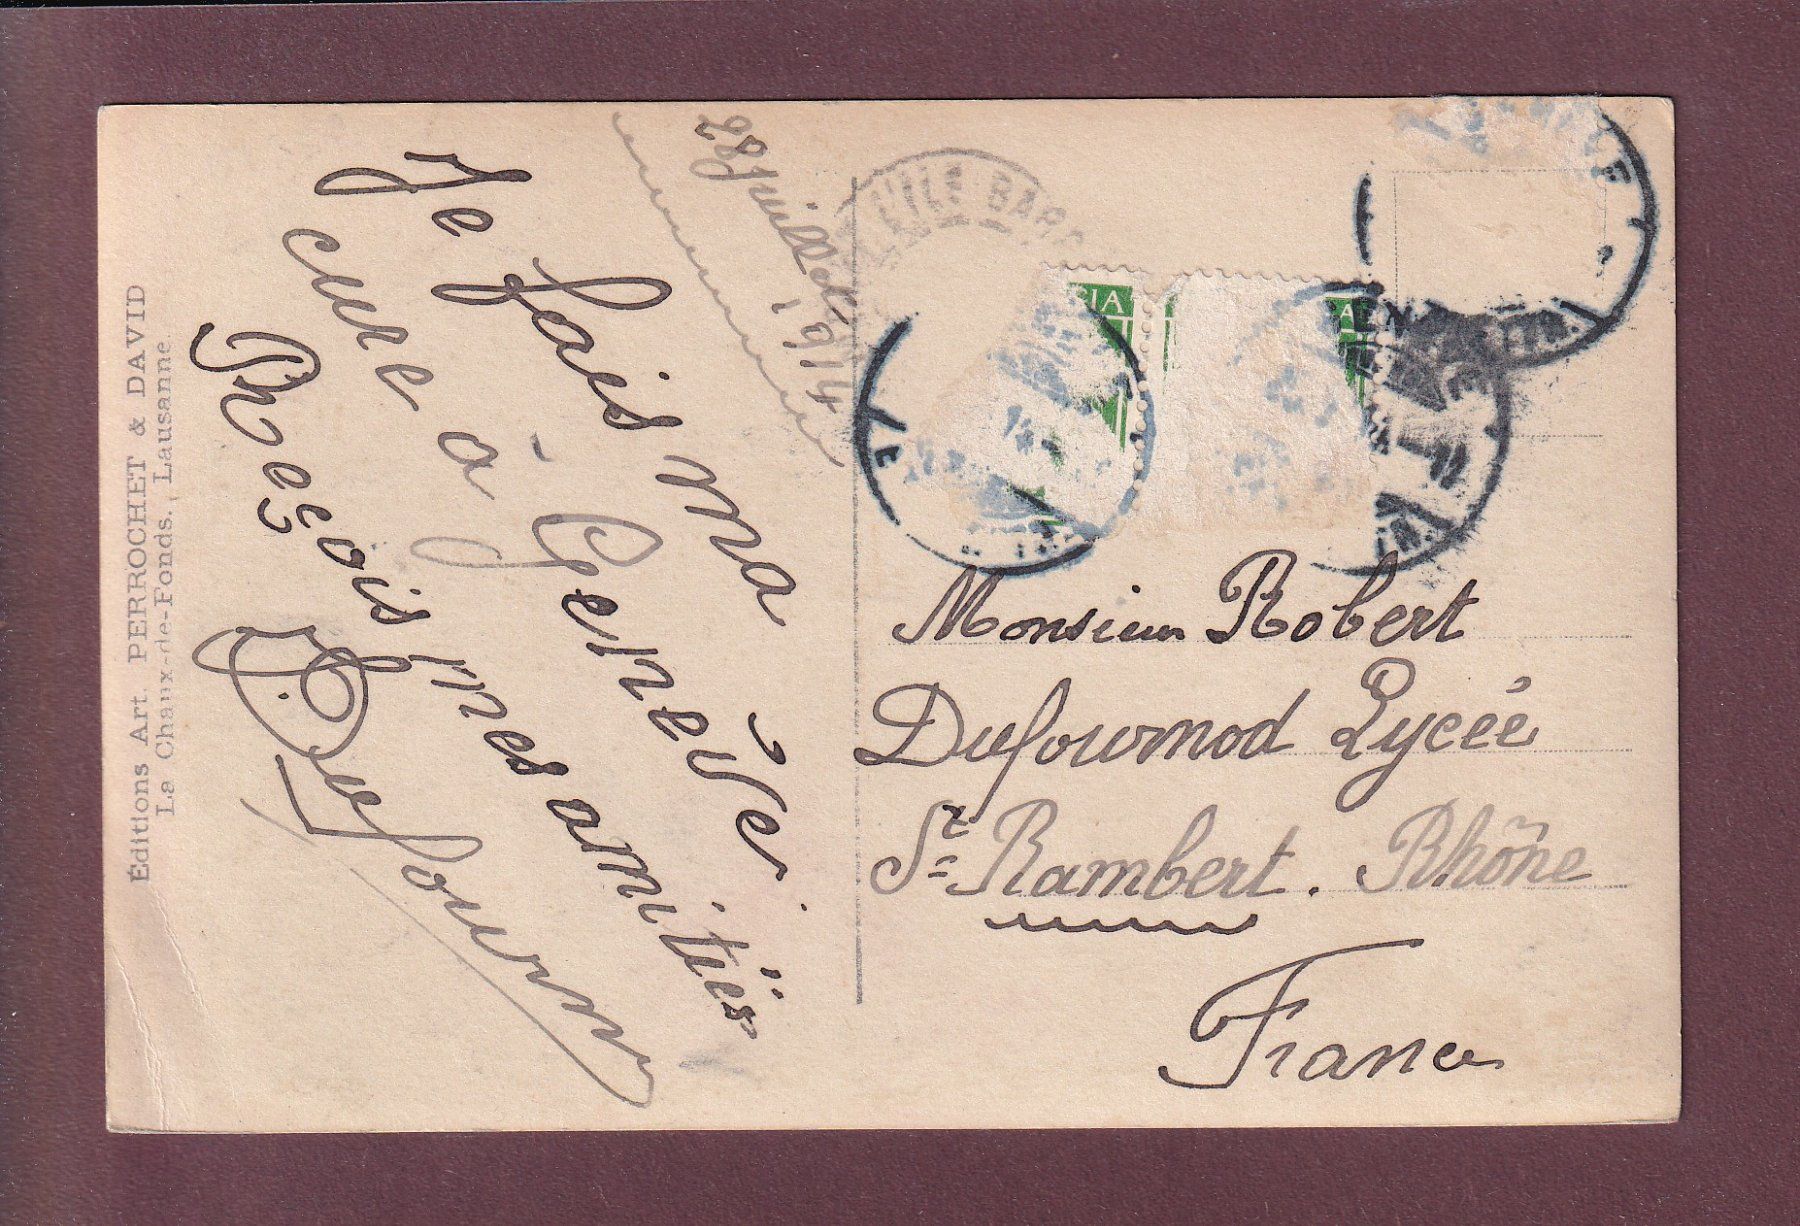 Éditions Art. PERROCHET & DAVID
La Chaux-de-Fonds, Lausanne.
28 juillet 1914
Je fais ma
cure à Genève.
Reçois mes amitiés
L'ILE BARB
Monsieur Robert
Dufournod Lycée
St Rambert. Rhône
France